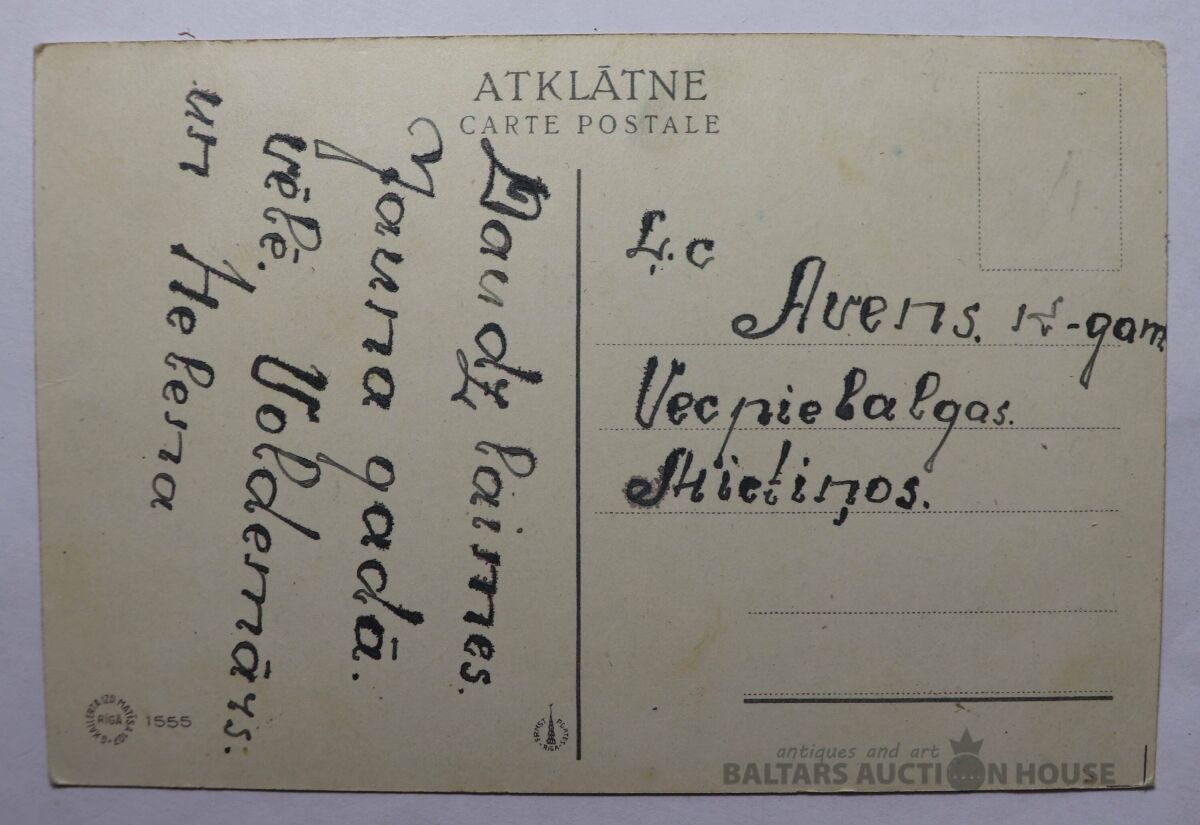 ATKLĀTNE
CARTE POSTALE
Daudz laimes.
Jauna gadā.
vēlē. Voldemārs.
un Helena
Ļ.c
Avens. -gam
Vecpiebalgas.
Skietiņos.
G. KAILLERTA IZD. MATĪSA
RĪGĀ
1555
ERNST PLATES
RIGA
antiques and art
BALTARS AUCTION HOUSE